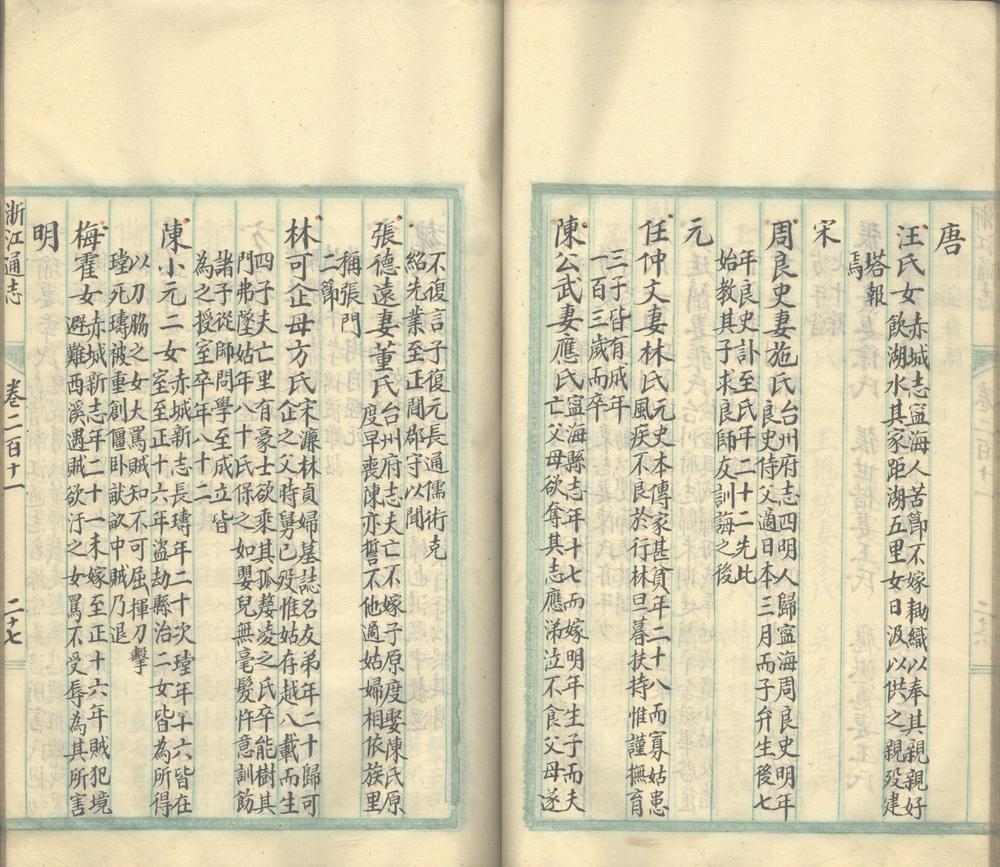 唐
汪氏女 赤城志寧海人苦節不嫁耕織以奉其親親好
飲湖水其家距湖五里女日汲以供之親歿建
塔報
焉
宋
周良史妻施氏 台州府志四明人歸寧海周良史明年
良史侍父適日本三月而子弁生後七
年良史訃至氏年二十二先此
始教其子求良師友訓誨之後
元
任仲文妻林氏 元史本傳家甚貧年二十八而寡姑患
風疾不良於行林旦暮扶持惟謹撫育
三子皆有成年
一百三歲而卒
陳公武妻應氏 寧海縣志年十七而嫁明年生子而夫
亡父母欲奪其志應涕泣不食父母遂
不復言子復元長通儒術克
紹先業至正間郡守以聞
張德遠妻董氏 台州府志夫亡不嫁子原度娶陳氏原
度早喪陳亦誓不他適姑婦相依族里
稱張門
二節
林可企母方氏 宋濂林貞婦墓誌名友弟年二十歸可
企之父時舅已歿惟姑存越八載而生
四子夫亡里有豪士欲乘其孤嫠凌之氏卒能樹其
門弗墜姑年八十氏保之如嬰兒無毫髮忤意訓飭
諸子從師問學至成立皆
為之授室卒年八十二
陳小元二女 赤城新志長璹年二十次瑝年十六皆在
室至正十六年盜劫縣治二女皆為所得
以刀脇之女大罵賊知不可屈揮刀擊
瑝死璹被重創僵卧畎畝中賊乃退
梅霍一女 赤城新志年二十一未嫁至正十六年賊犯境
避難西溪遇賊欲汙之女罵不受辱為其所害
明
浙江通志 卷二百十一 二十七